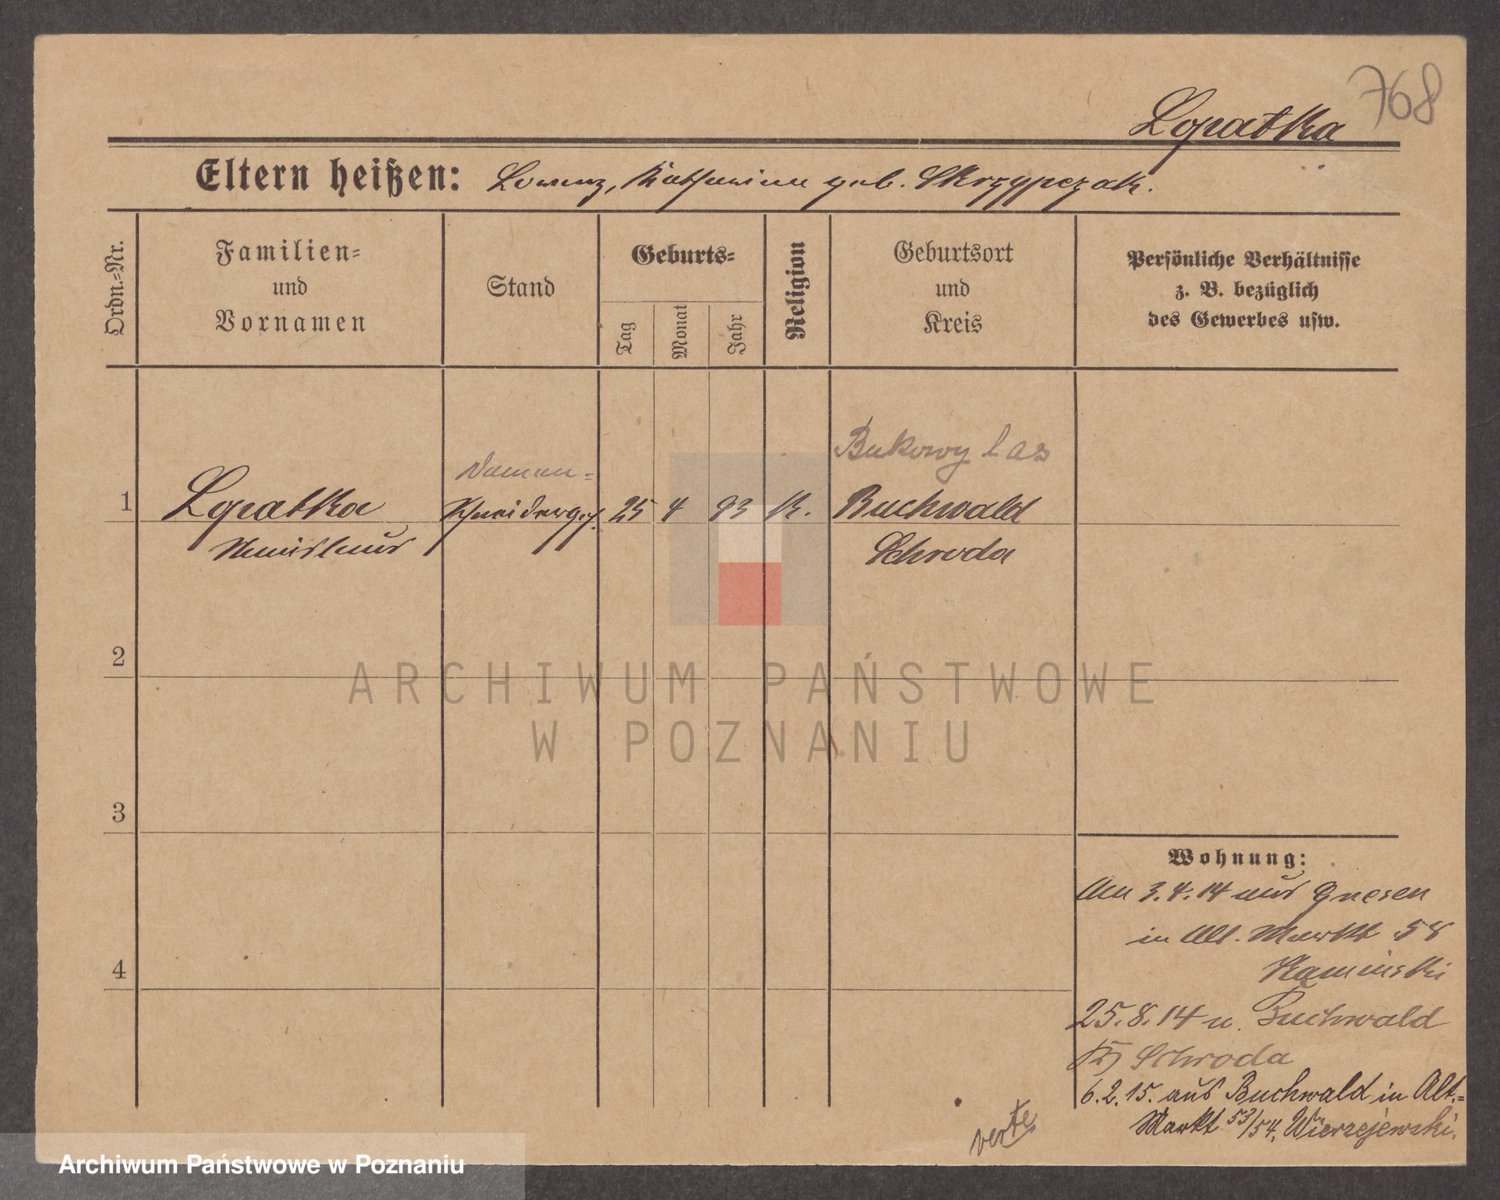 768
Lopatka
Eltern heißen: Lorenz, Katharina geb. Skrzypczak.
Ordn.-Nr.
Familien-
und
Vornamen
Stand
Geburts-
Tag
Monat
Jahr
Religion
Geburtsort
und
Kreis
Persönliche Verhältnisse
z. B. bezüglich
des Gewerbes usw.
Damen-
Bukowy las
1 Lopatka Schneiderges. 25 4 93 K. Buchwald
Stanislaus Schroda
2
3
4
ARCHIWUM PAŃSTWOWE
W POZNANIU
Wohnung:
Am 3.4.14 aus Gnesen
in Alt. Markt 58
Kaminski
25.8.14 n. Buchwald
Schroda
6.2.15. aus Buchwald in Alt.-
Markt 53/54, Wierzejewski.
verte
Archiwum Państwowe w Poznaniu